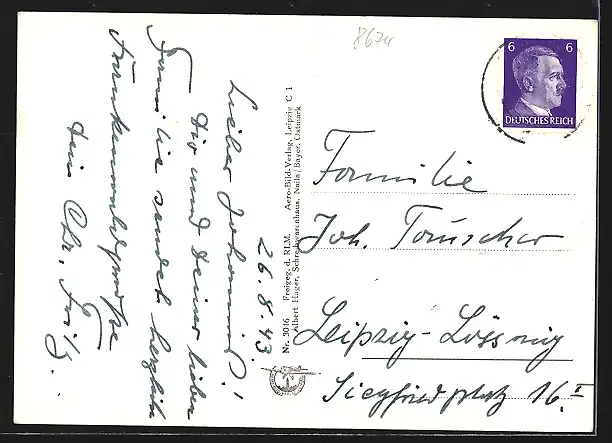 8674
6 6
DEUTSCHES REICH
26.8.43.
Lieber Johannes!
Dir und Deiner lieben
Familie sendet herzliche
Dein Chr.
Nr. 3016 Freigeg. d. RLM. Aero-Bild-Verlag, Leipzig C 1
Albert Hager, Schreibwarenhaus, Naila/Bayer. Ostmark
Familie
Joh. Tauscher
Leipzig-Lössnig
Siegfriedplatz 16. I